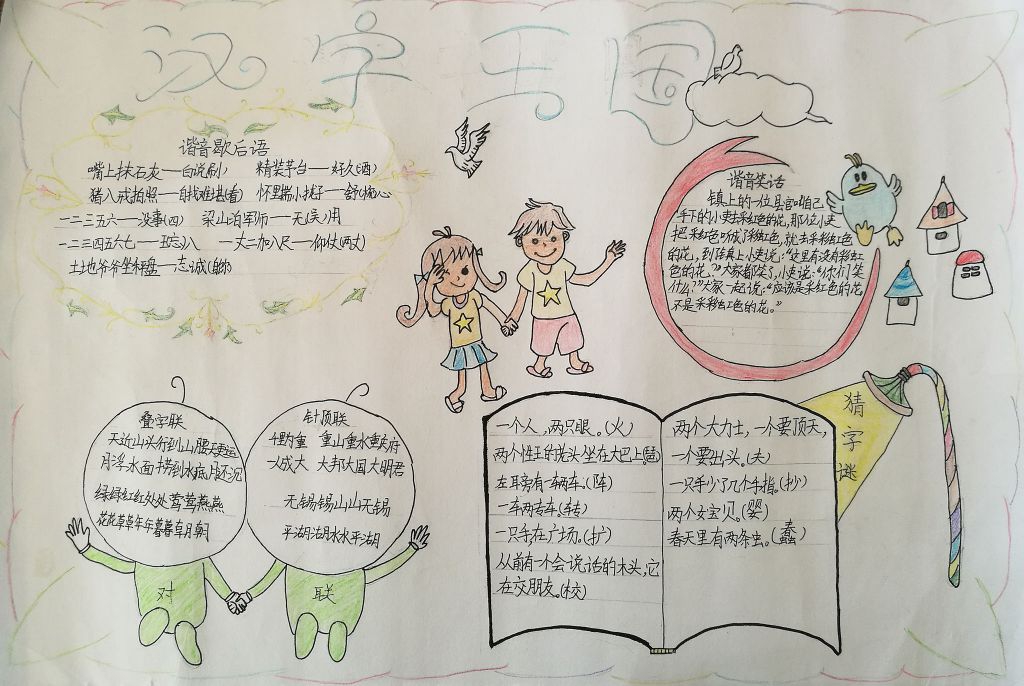 汉字王国
谐音歇后语
嘴上抹石灰——白说(刷) 精装茅台——好久(酒)
猪八戒拍照——自找难堪(看) 怀里揣小梳子——舒(梳)心
一二三五六——没事(四) 梁山泊军师——无(吴)用
一二三四五六七——王(忘)八 一丈二加八尺——仰仗(两丈)
土地爷爷坐神盘——志诚
谐音笑话
镇上的一位县官叫自己
手下的小吏去采红色的花,那位小吏
把采红色听成了彩红色,就去采彩红色
的花,到镇上小吏说:“这里有没有彩红
色的花。”大家都笑了,小吏说:“你们笑
什么?”大家一起说:“应该是采红色的花
不是采彩红色的花。”
叠字联
天近山头行到山腰天更远
月浮水面捞到水底月还沉
绿绿红红处处莺莺燕燕
花花草草年年暮暮朝朝
对
针顶联
千里为重 重山重水重庆府
一人成大 大邦大国大明君
无锡锡山山无锡
平湖湖水水平湖
联
猜字谜
一个人,两只眼。(火)
两个姓王的光头坐在大巴上。(琶)
左耳旁有一辆车。(阵)
一车两专车。(转)
一只手在广场。(扩)
从前有一个会说话的木头,它
在交朋友。(校)
两个大力士,一个要顶天,
一个要出头。(夫)
一只手少了几个手指。(抄)
两个女宝贝。(婴)
春天里有两条虫。(蠢)